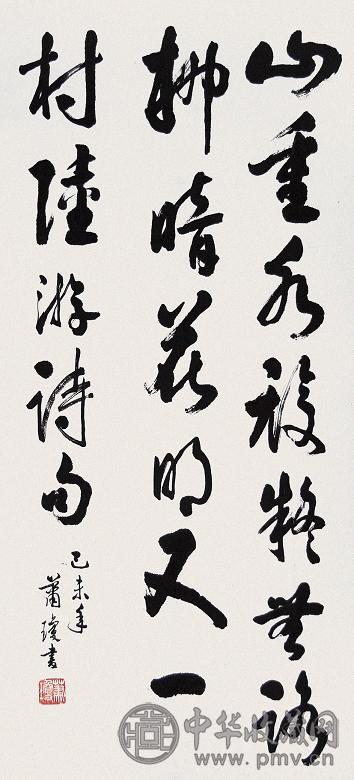 山重水複疑無路
柳暗花明又一
村陸游詩句
己未年
蕭瓊書
中华收藏网
www.pmv.cn